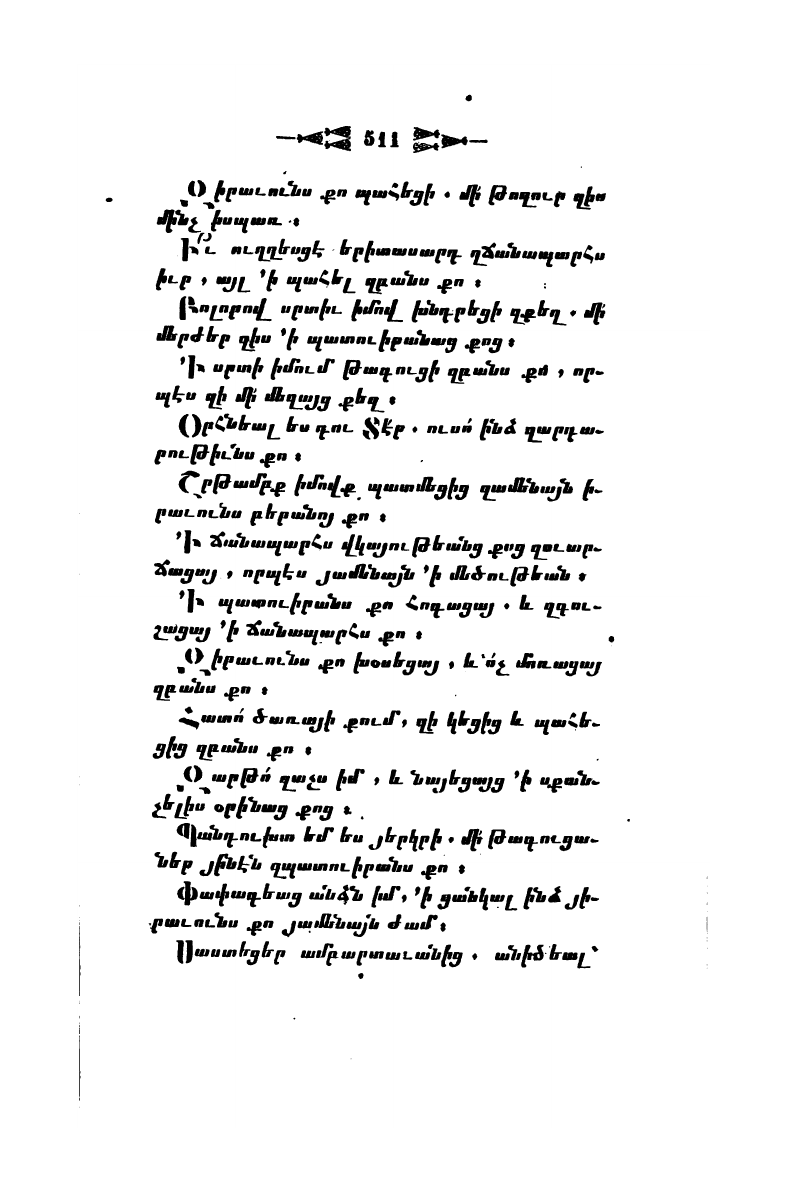 511
Զիրաւունս քո պահեցի. մի՛ թողուր զիս
մինչ իսպառ։
Ի՞ւ ուղղեսցէ երիտասարդ զճանապարհս
իւր, այլ ՚ի պահել զբանս քո։
Բոլորով սրտիւ իմով խնդրեցի զքեզ. մի՛
մերժեր զիս ՚ի պատուիրանաց քոց։
՚Ի սրտի իմում թագուցի զբանս քո, որ-
պէս զի մի՛ մեղայց քեզ։
Օրհնեալ ես դու Տէր. ուսո՛ ինձ զարդա-
րութիւնս քո։
Շրթամբք իմովք պատմեցից զամենայն ի-
րաւունս բերանոյ քո։
՚Ի ճանապարհս վկայութեանց քոց զուար-
ճացայ, որպէս յամենայն ՚ի մեծութեան։
՚Ի պատուիրանս քո հոգացայ. և զգու-
շացայ ՚ի ճանապարհս քո։
Զիրաւունս քո խօսեցայ, և ո՛չ մոռացայ
զբանս քո։
Հատո՛ ծառայի քում, զի կեցից և պահե-
ցից զբանս քո։
Զարթո՛ զաչս իմ, և նայեցայց ՚ի սքան-
չելիս օրինաց քոց։
Պանդուխտ եմ ես յերկրի. մի՛ թագուցա-
ներ յինէն զպատուիրանս քո։
Փափագեաց անձն իմ, ՚ի ցանկալ ինձ յի-
րաւունս քո յամենայն ժամ։
Սաստեցեր ամբարտաւանից. անիծեալ՝